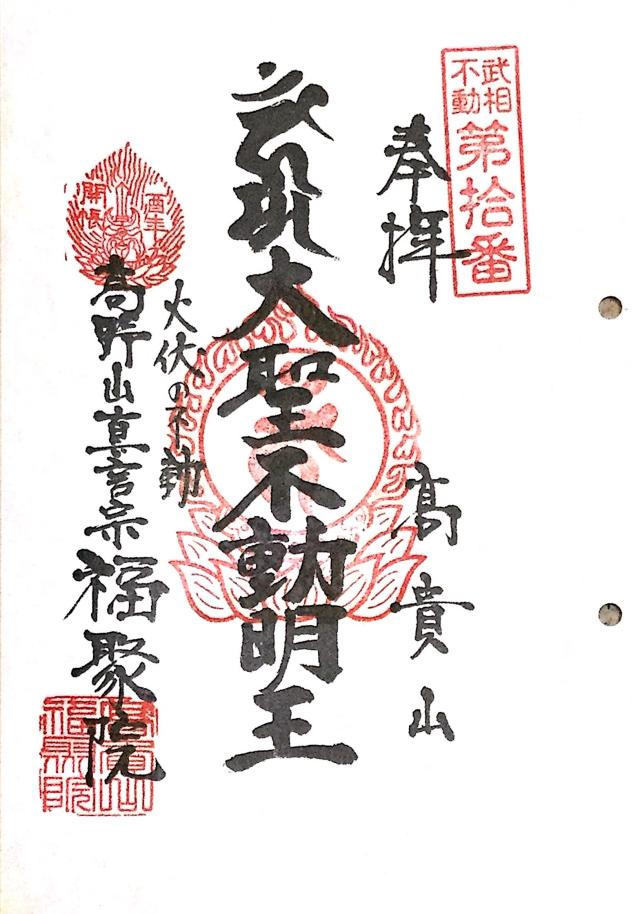 武相
不動
第拾番
奉拝
髙貴山
大聖不動明王
火伏の不動
酉年
開帳
高野山真言宗福聚院